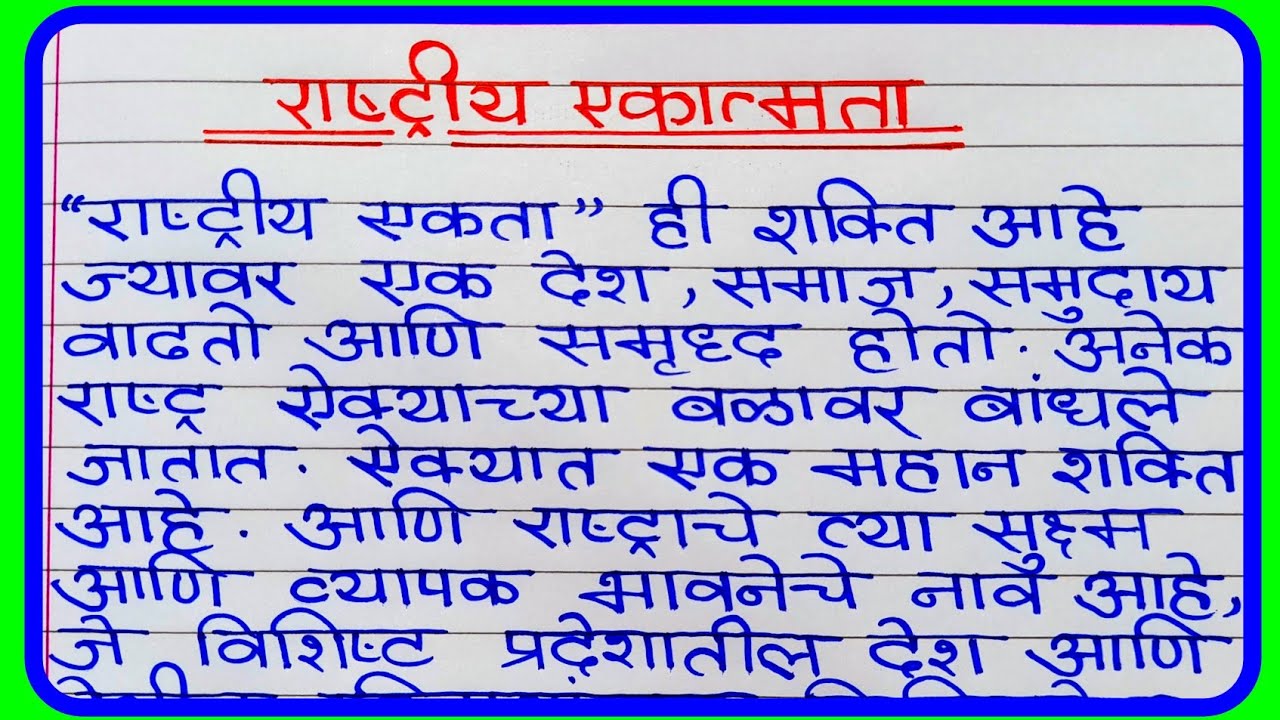 राष्ट्रीय एकात्मता
“राष्ट्रीय एकता” ही शक्ति आहे
ज्यावर एक देश, समाज, समुदाय
वाढतो आणि समृध्द होतो. अनेक
राष्ट्र ऐक्याच्या बळावर बांधले
जातात. ऐक्यात एक महान शक्ति
आहे. आणि राष्ट्राचे त्या सुक्ष्म
आणि व्यापक भावनेचे नाव आहे,
जे विशिष्ट प्रदेशातील देश आणि